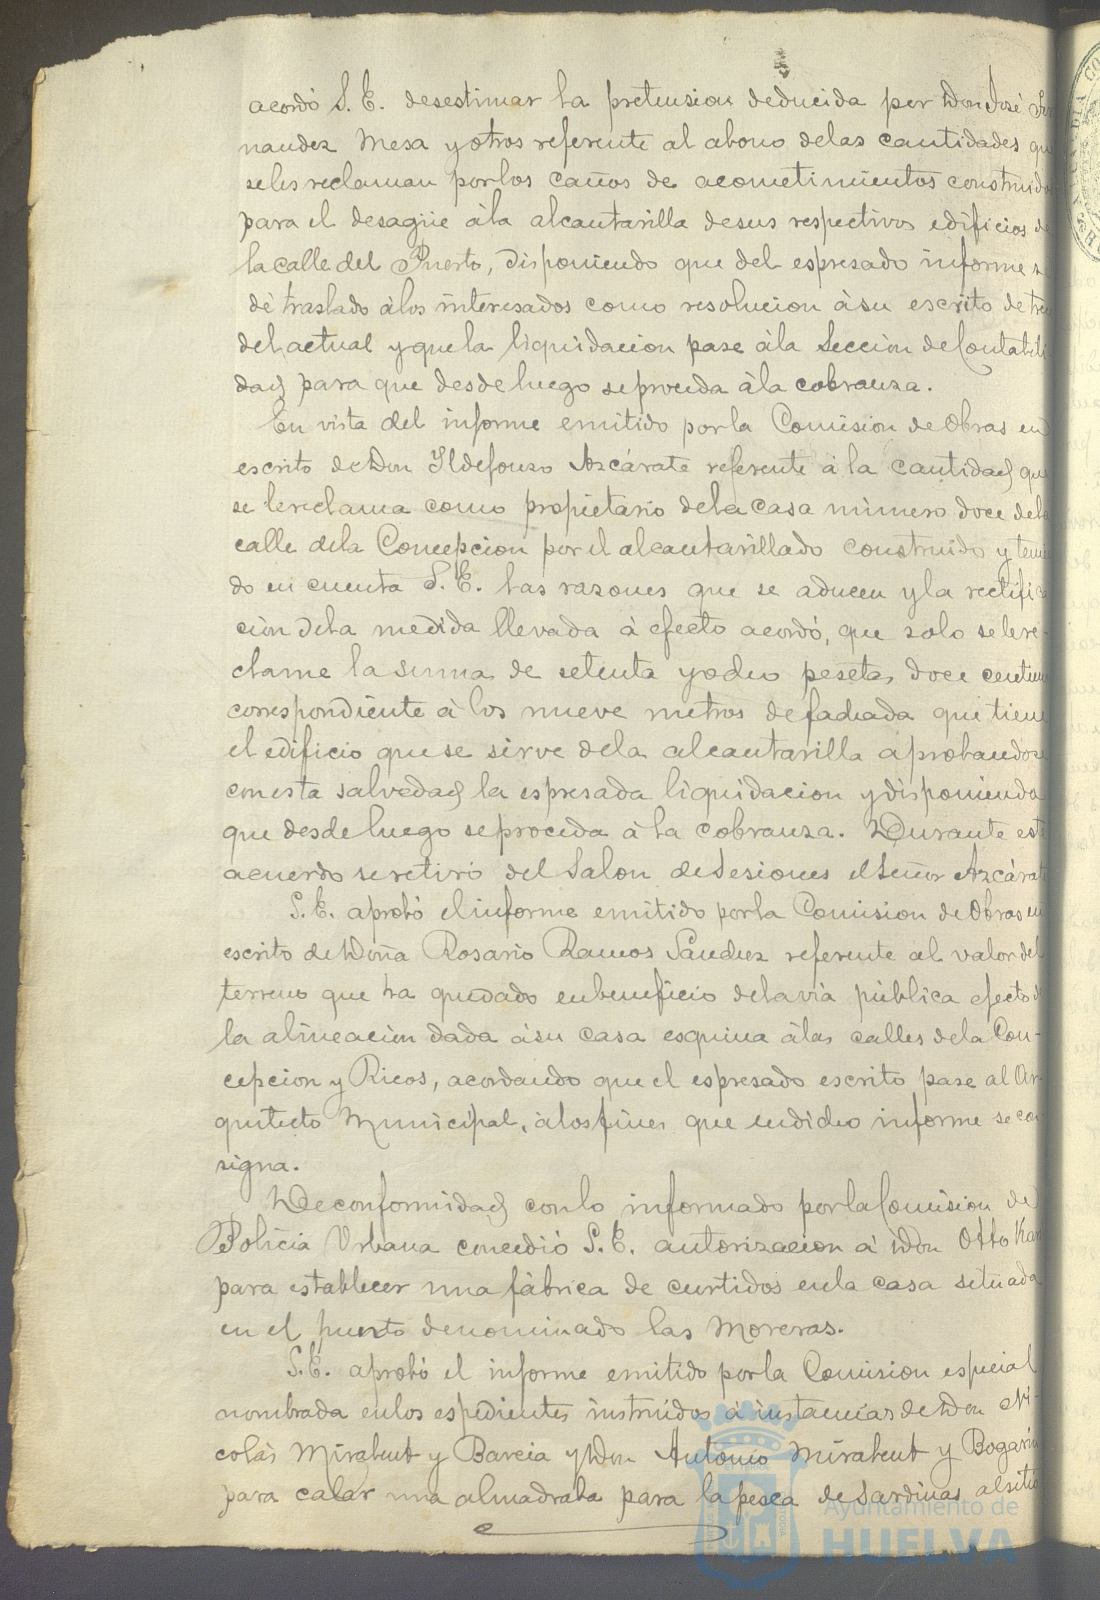 acordó S. E. desestimar la pretension deducida por Don José
nandez Mesa y otros referente al abono de las cantidades que
se les reclaman por los caños de acometimientos construido
para el desagüe á la alcantarilla de sus respectivos edificios de
la calle del Puerto, disponiendo que del espresado informe se
dé traslado á los interesados como resolucion á su escrito de
del actual y que la liquidacion pase á la Seccion de Contabili
dad para que desde luego se proceda á la cobranza.
En vista del informe emitido por la Comision de Obras en
escrito de Don Ildefonso Azcárate referente á la cantidad que
se le reclama como propietario de la casa número doce de la
calle de la Concepcion por el alcantarillado construido y tenien
do en cuenta S. E. las razones que se aducen y la rectifica
ción de la medida llevada á efecto acordó, que solo se le re-
clame la suma de setenta y ocho pesetas doce centimo
correspondiente á los nueve metros de fachada que tiene
el edificio que se sirve de la alcantarilla aprobandose
con esta salvedad la espresada liquidacion y disponiendo
que desde luego se proceda á la cobranza. Durante este
acuerdo se retiró del Salon de Sesiones el Señor Azcárate
S. E. aprobó el informe emitido por la Comision de Obras en
escrito de Doña Rosario Ramos Sanchez referente al valor del
terreno que ha quedado en beneficio de la via pública efecto de
la alineacion dada á su casa esquina á las calles de la Con-
cepcion y Ricos, acordando que el espresado escrito pase al Ar-
quitecto Municipal, á los fines que en dicho informe se con
signa.
De conformidad con lo informado por la Comision de
Policia Urbana concedió S. E. autorizacion á Don Otto
para establecer una fábrica de curtidos en la casa situada
en el punto denominado las Moreras.
S. E. aprobó el informe emitido por la Comision especial
nombrada en los espedientes instruidos á instancias de Don Ni-
colás Mirabent y Barcia y Don Antonio Mirabent y Bogarin
para calar una almadraba para la pesca de Sardinas al sitio
Ayuntamiento de
HUELVA